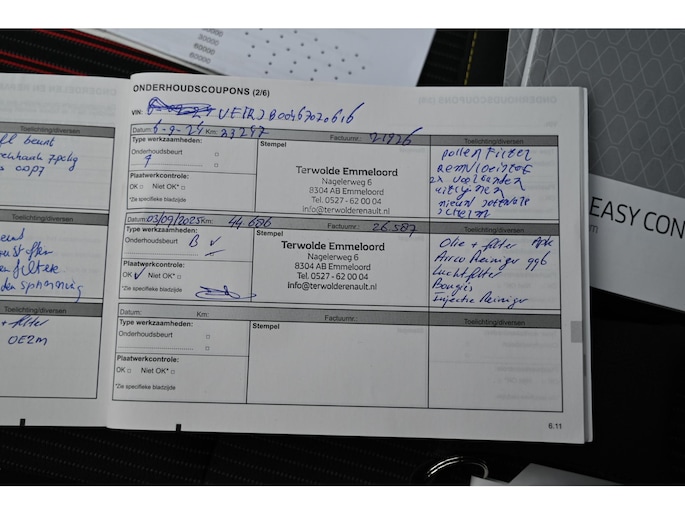 30000
40000
50000
60000
EASY CON
ONDERHOUDSCOUPONS (2/6)
VIN:
Datum: 6-9-24 Km: 23297 Factuurnr.: 21926 Toelichting/diversen
Type werkzaamheden:
Onderhoudsbeurt
Stempel
Terwolde Emmeloord
Nagelerweg 6
8304 AB Emmeloord
Tel. 0527 - 62 00 04
info@terwolderenault.nl
pollen Filter
remvloeistof
2x voorbanden
uitlijnen
nieuw
Plaatwerkcontrole:
OK □ Niet OK* □
*Zie specifieke bladzijde
Datum: 03/09/2025 Km: 44.686 Factuurnr.: 26.587 Toelichting/diversen
Type werkzaamheden:
Onderhoudsbeurt B ✓
Stempel
Terwolde Emmeloord
Nagelerweg 6
8304 AB Emmeloord
Tel. 0527 - 62 00 04
info@terwolderenault.nl
Olie + filter Apk
Airco Reiniger 996
Luchtfilter
Bougis
Injectie Reiniger
Plaatwerkcontrole:
OK ✓ Niet OK* □
*Zie specifieke bladzijde
Datum: Km: Factuurnr.: Toelichting/diversen
Type werkzaamheden:
Onderhoudsbeurt □
Stempel
Plaatwerkcontrole:
OK □ Niet OK* □
*Zie specifieke bladzijde
6.11
Toelichting/diversen
beurt
Toelichting/diversen
Toelichting/diversen
+ filter
OEM